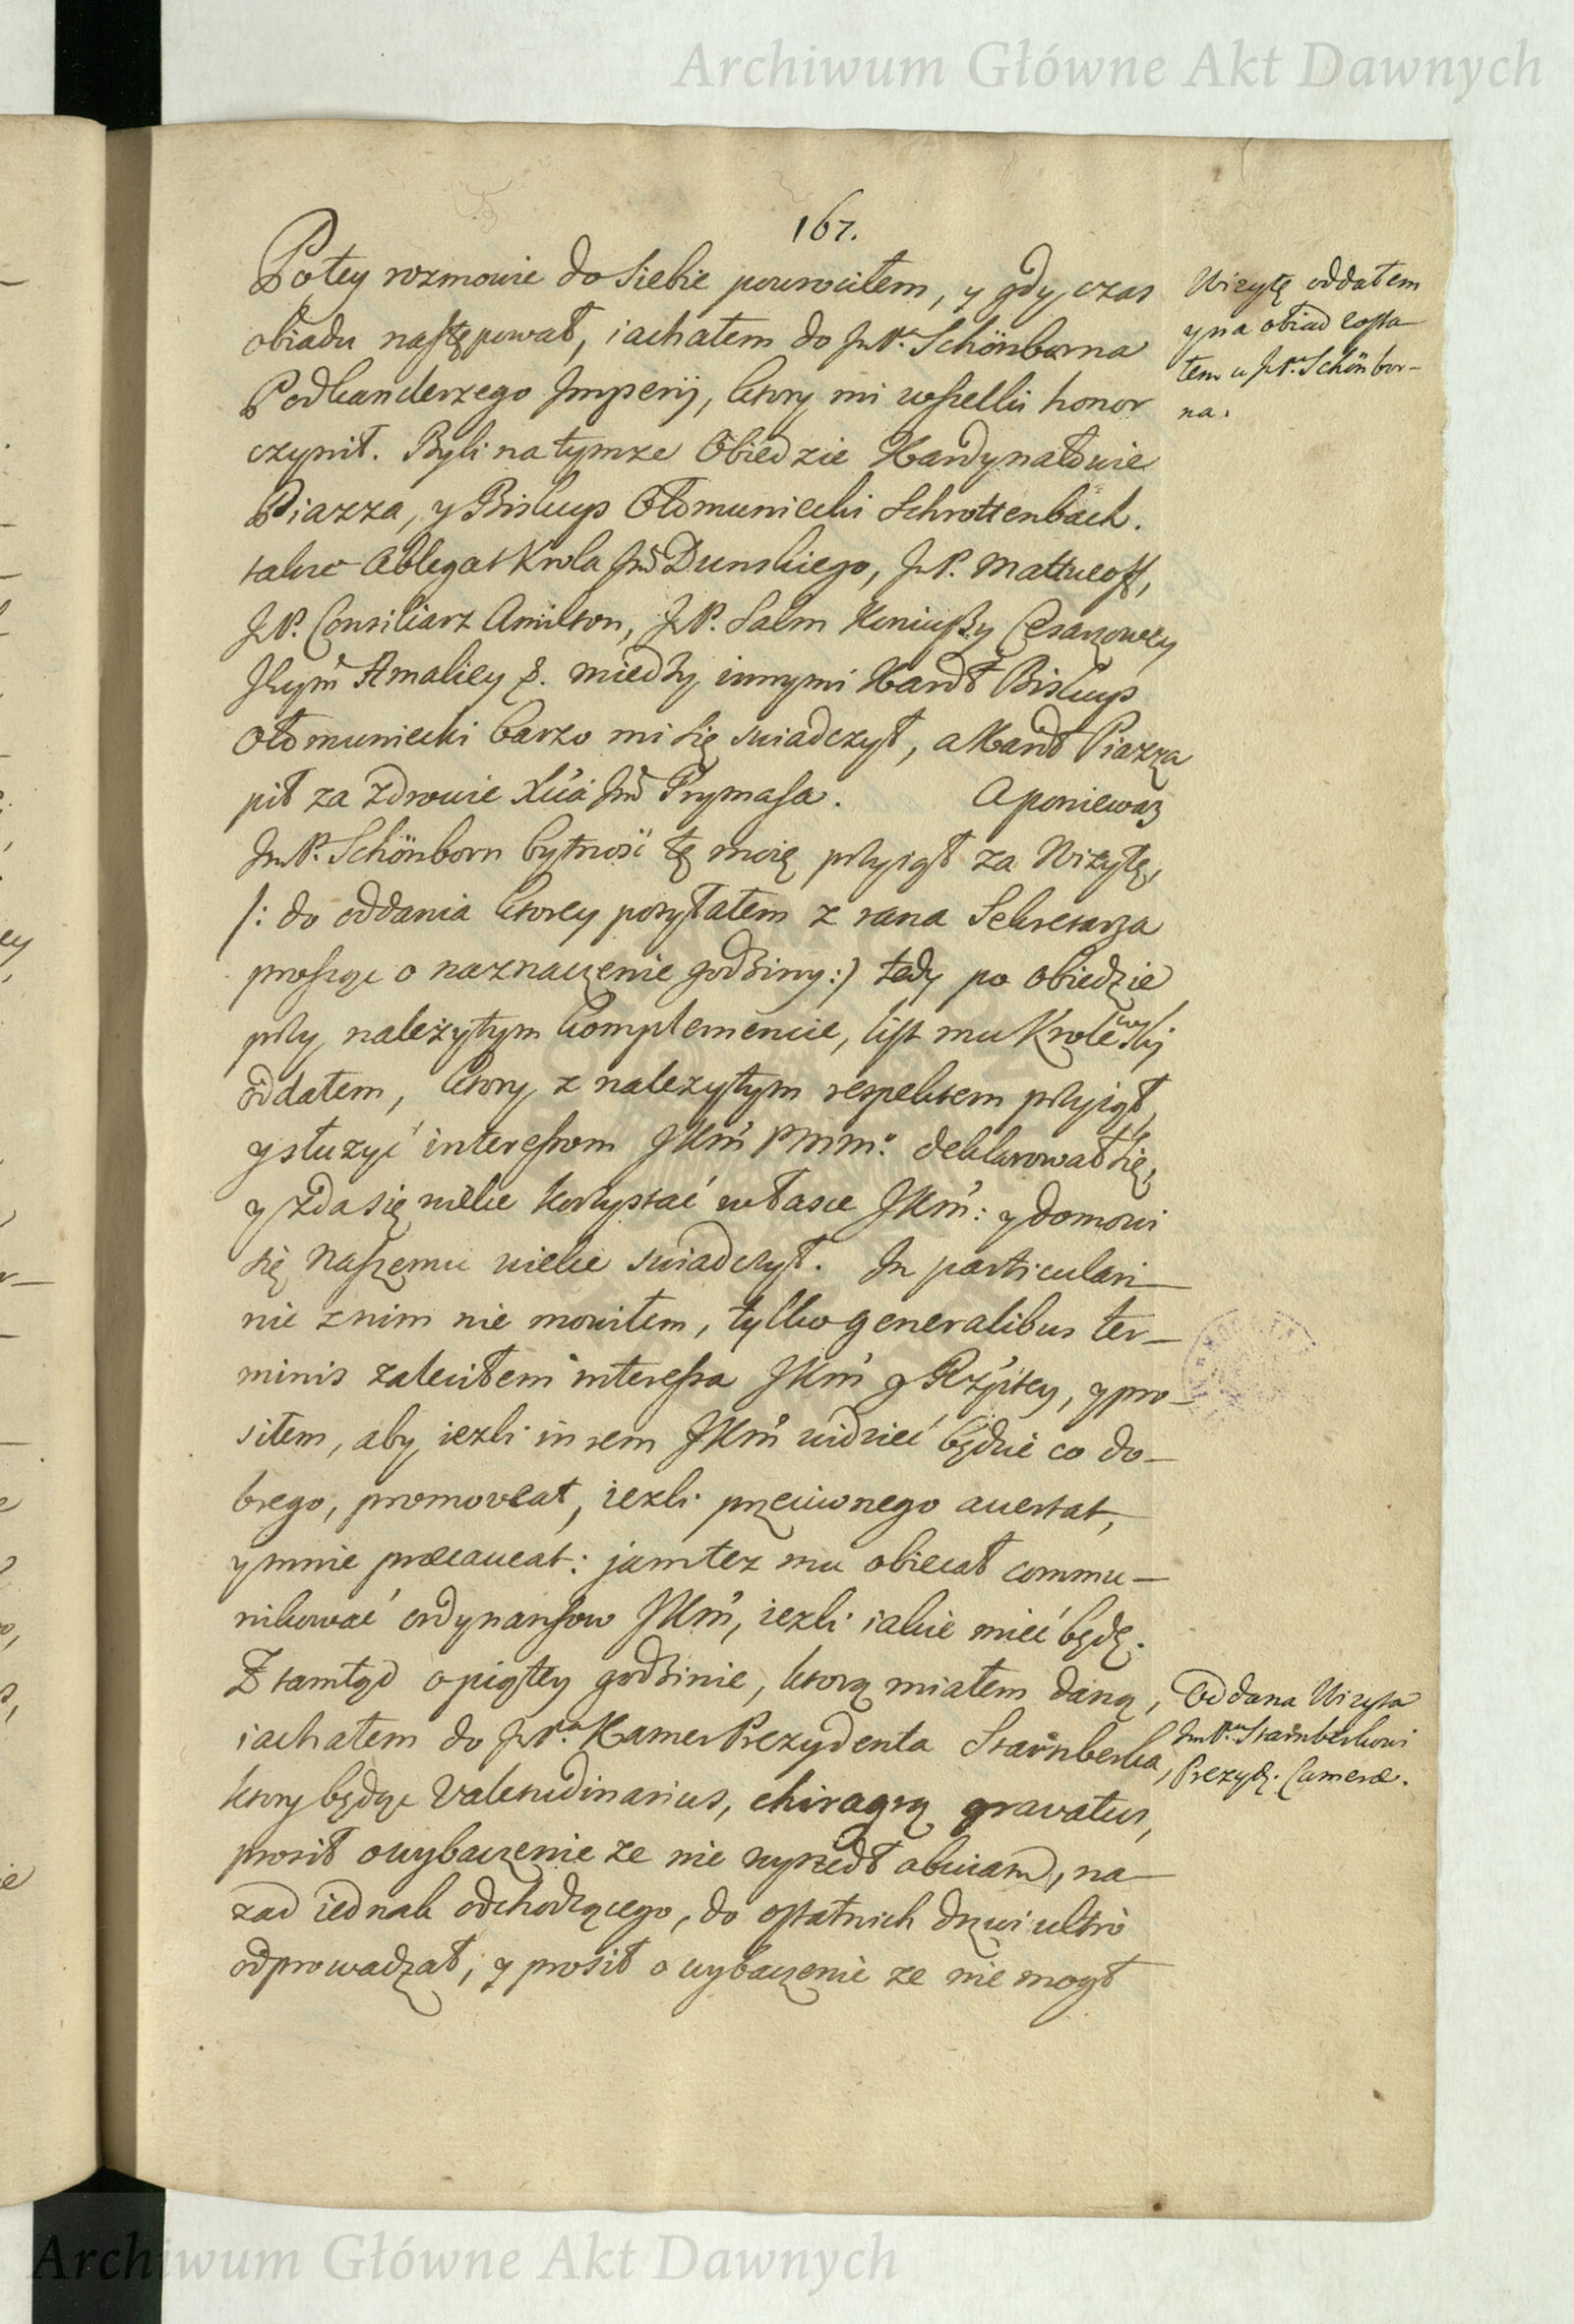 Archiwum Główne Akt Dawnych
167.
Po tey rozmowie do siebie powrociłem, y gdy czas
obiadu następował, iachałem do JmP.ª Schönborna
Podkanclerzego Imperij, ktory mi wszelki honor
czynił. Byli na tymze Obiedzie Kardynałowie
Piazza, y Biskup Ołomuniecki Schrottenbach.
takze Ablegat Krola Jmći Dunskiego, JmP.
JP. Consiliarz Amilton, JP. Salm Koniuszy Cesarzowey
Jkeym̃ Amaliey &. miedzy innymi Kardł Biskup
Ołomuniecki barzo mi się swiadczył, a Kardł Piazza
pił za zdrowie Xcia Jmći Prymasa. A poniewaz
JmP. Schönborn bytność tę moię przyiął za Wizytę,
/: do oddania ktorey posyłałem z rana Sekretarza
prosząc o naznaczenie godziny :/ tedy po obiedzie
przy należytym komplemencie, list mu Krolewski
oddałem, ktory z nalezytym respektem przyiął,
y służyć interessom JKm̃ PNM.º deklarował się,
y zda się wielce korzystać w łasce JKm̃: y domowi
się naszemu wielce swiadczył. In particulari
nic z nim nie mowiłem, tylko generalibus ter-
minis zaleciłem interessa JKm̃ y Rzpltey, y pro-
siłem, aby iezli in rem JKm̃ widzieć będzie co do-
brego, promoveat, iezli przeciwnego avertat,
y mnie præcaveat: jam tez mu obiecał commu-
nikować ordynansow JKm̃, iezli iakie mieć będę.
Ztamtąd o piątey godzinie, ktorą miałem daną,
iachałem do JmP.ª Kamer Prezydenta Starnberka,
ktory będąc Valetudinarius, chiragrą gravatus,
prosił o wybaczenie ze nie wyszedł obwiam, na-
zad iednak odchodzącego, do ostatnich drzwi ultro
odprowadzał, y prosił o wybaczenie ze nie mogł
Wizytę oddałem
y na obiad zosta-
łem u JmP.ª Schönbor-
na.
Oddana Wizyta
JmP.ᵘ Starnberkowi
Prezyd. Cameræ.
Archiwum Główne Akt Dawnych